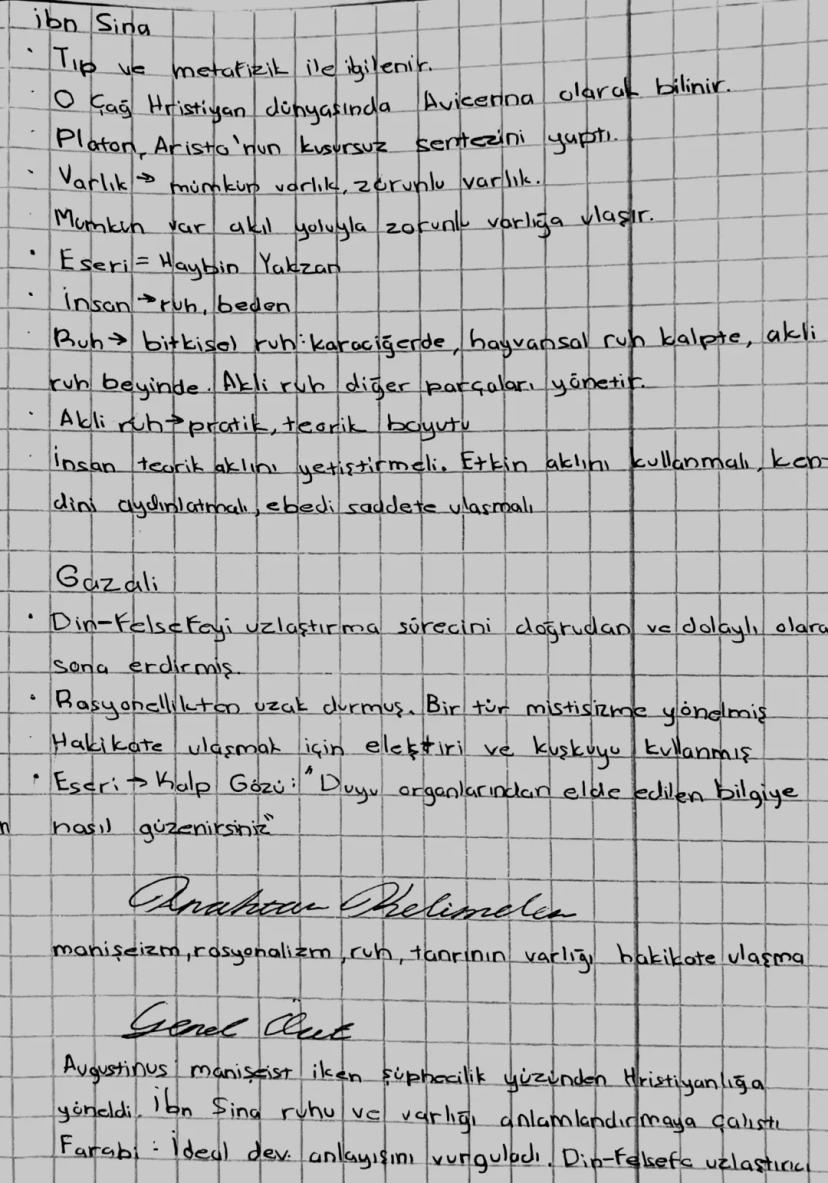 ibn Sina
· Tıp ve metafizik ile ilgilenir.
· O Çağ Hristiyan dünyasında Avicenna olarak bilinir.
· Platon, Aristo'nun kusursuz sentezini yaptı.
· Varlık → mümkün varlık, zorunlu varlık.
· Mümkün var akıl yoluyla zorunlu varlığa ulaşır.
· Eseri = Haybin Yakzan
· İnsan → ruh, beden
· Ruh → bitkisel ruh: karaciğerde, hayvansal ruh kalpte, akli
ruh beyinde. Akli ruh diğer parçaları yönetir.
· Akli ruh → pratik, teorik boyutu
· İnsan teorik aklını yetiştirmeli. Etkin aklını kullanmalı, ken-
dini aydınlatmalı, ebedi saddete ulaşmalı
Gazali
· Din-Felsefeyi uzlaştırma sürecini doğrudan ve dolaylı olara
sona erdirmiş.
· Rasyonellikten uzak durmuş. Bir tür mistisizme yönelmiş
Hakikate ulaşmak için eleştiri ve kuşkuyu kullanmış
· Eseri → Kalp Gözü: "Duyu organlarından elde edilen bilgiye
n nasıl güzenirsiniz"
Anahtar Kelimeler
manişeizm, rasyonalizm, ruh, tanrının varlığı hakikate ulaşma
Genel Özet
Augustinus manişeist iken şüphecilik yüzünden Hristiyanlığa
yöneldi. İbn Sina ruhu ve varlığı anlamlandırmaya çalıştı
Farabi: İdeal dev. anlayışını vurguladı. Din-felsefe uzlaştırıcı